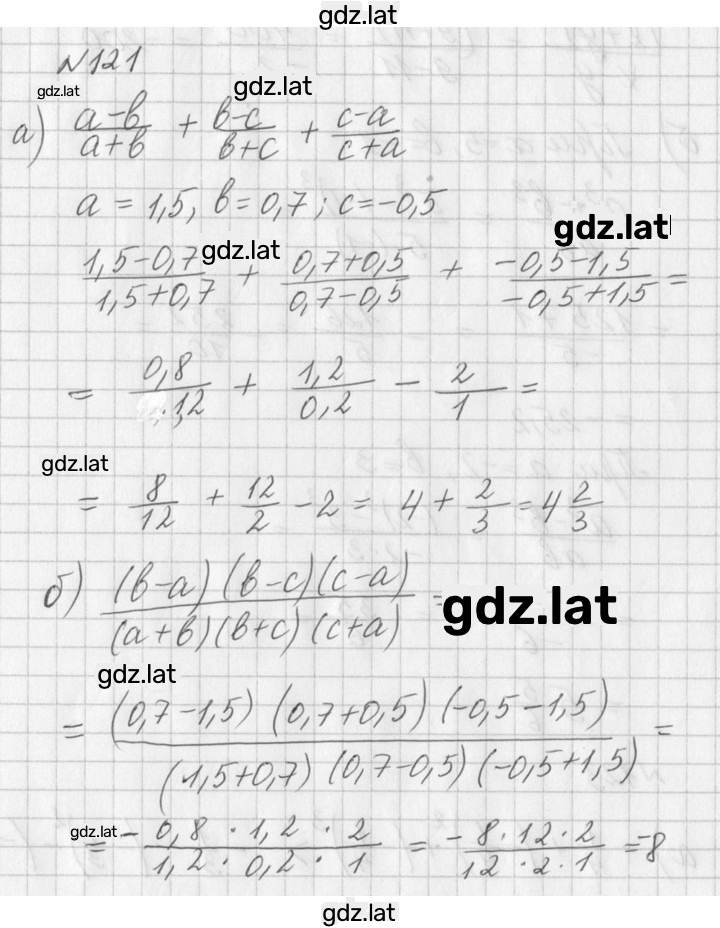 gdz.lat
№121
gdz.lat gdz.lat
а) (a-b)/(a+b) + (b-c)/(b+c) + (c-a)/(c+a)
a = 1,5, b = 0,7; c = -0,5
gdz.lat gdz.lat
(1,5-0,7)/(1,5+0,7) + (0,7+0,5)/(0,7-0,5) + (-0,5-1,5)/(-0,5+1,5) =
= 0,8/1,2 + 1,2/0,2 - 2/1 =
gdz.lat
= 8/12 + 12/2 - 2 = 4 + 2/3 = 4 2/3
б) ((b-a)(b-c)(c-a))/((a+b)(b+c)(c+a)) =
gdz.lat
gdz.lat
= ((0,7-1,5)(0,7+0,5)(-0,5-1,5))/((1,5+0,7)(0,7-0,5)(-0,5+1,5)) =
gdz.lat
= -(0,8·1,2·2)/(1,2·0,2·1) = (-8·12·2)/(12·2·1) = -8
gdz.lat